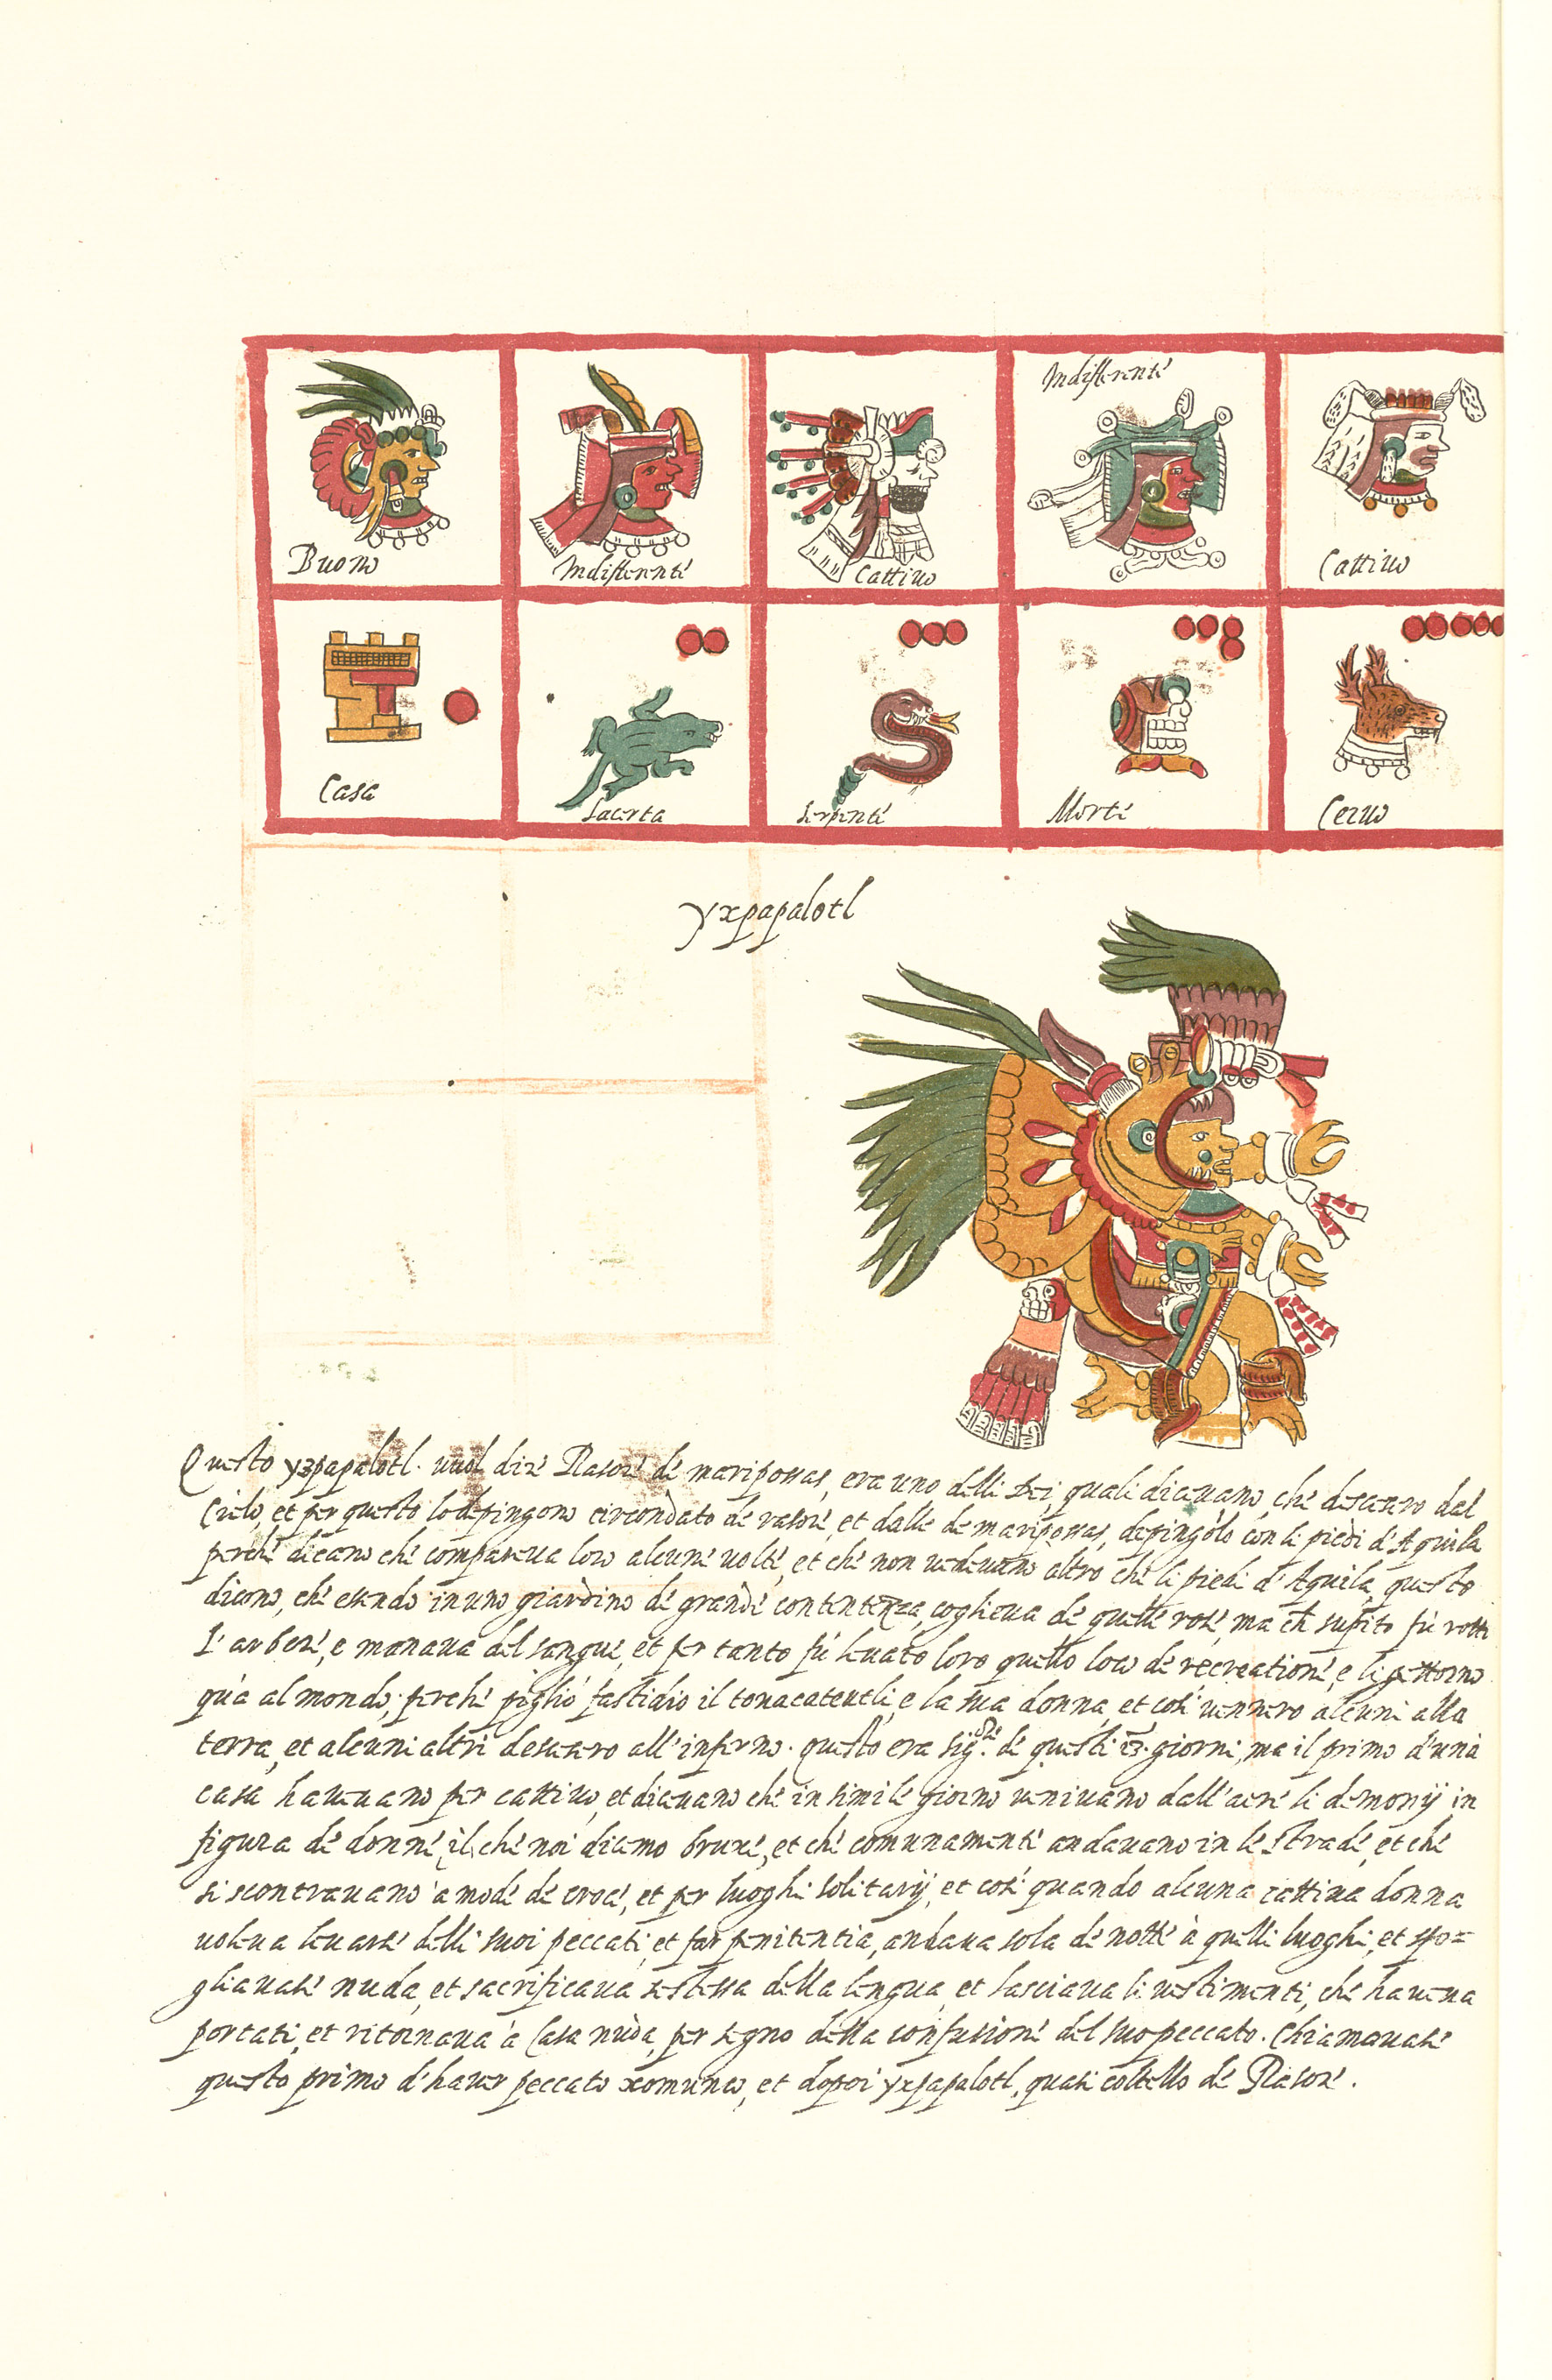 Indifferente
Buono
Indifferente
Cattivo
Cattivo
Casa
Lacerta
Serpente
Morte
Cervo
yxpapalotl
Questo yzpapalotl. vuol dire Rasore de mariposas, era uno delli Dei, quali dicevano, che descesero dal
Cielo, et per questo lo depingono circondato de rasore, et dalle de mariposas, depingolo con li piedi d'Aquila
perche dicano che compareva loro alcune volte, et che non vedevano altro che li piedi d'Aquila, questo
dicono, che essendo in uno giardino de grande contentezza, coglieva de quelle rose, ma ch subito fù rotto
l'arbore, e manava del sangue, et per tanto fù levato loro quello loco de recreatione, e li gettorno
quà al mondo, perche pigliò fastidio il tonacateutli, e la sua donna, et così vennero alcuni alla
terra, et alcuni altri descesero all'inferno. questo era Sig.re de questi 13. giorni, ma il primo d'una
casa havevano per cattivo, et dicevano che in simile giorno venivano dall'aere li demonij in
figura de donne, il che noi diciamo bruxe, et che comunamente andavano in le strade, et che
si scontravano à mode de croce, et per luoghi solitarij, et così quando alcuna cattiva donna
voleva levarse delli suoi peccati, et far penitentia, andava sola de notte à quelli luoghi, et spo=
gliavase nuda, et sacrificava se stessa della lengua, et lasciava li vestimenti, che haveva
portati, et ritornava à Casa nuda, per segno della confusione del suo peccato. Chiamavase
questo primo d'haver peccato xomunco, et dopoi yxpapalotl, quasi coltello de Rasore.